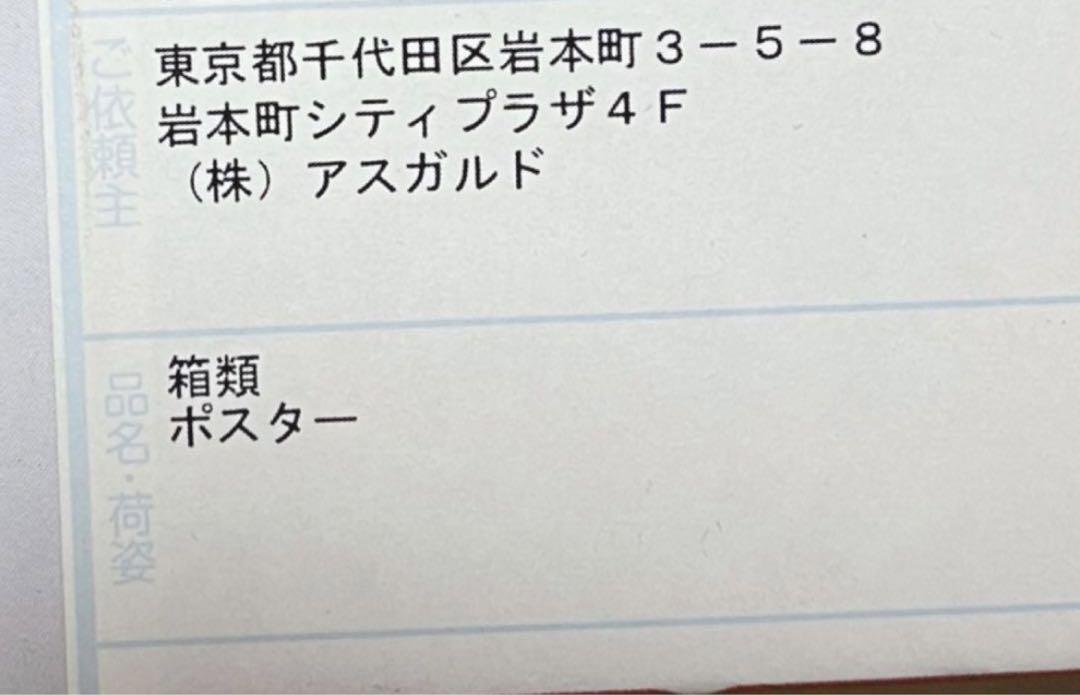 ご依頼主
東京都千代田区岩本町３－５－８
岩本町シティプラザ４Ｆ
（株）アスガルド
品名・荷姿
箱類
ポスター